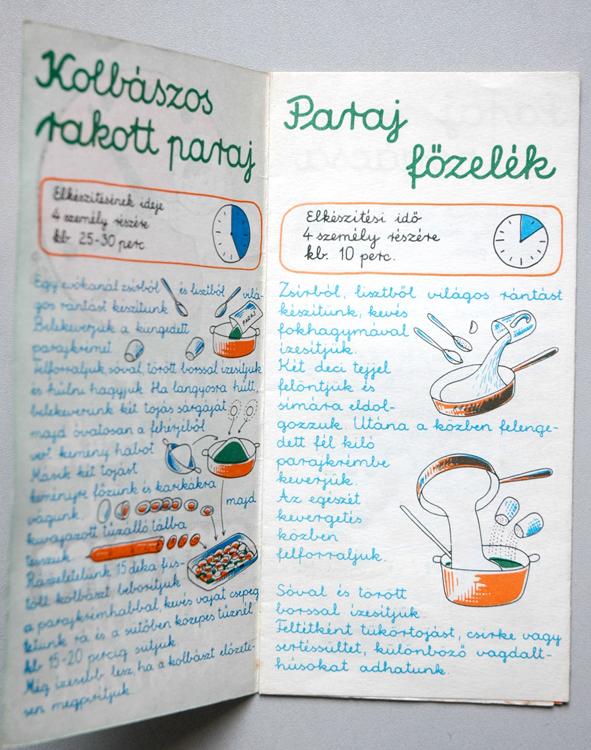 Kolbászos
rakott paraj
Elkészítésének ideje
4 személy részére
kb. 25-30 perc.
Egy evőkanál zsírból és lisztből vilá-
gos rántást készítünk
Belekeverjük a kiengedett
parajkrémet.
PARAJ
Felforraljuk sóval, törött borssal ízesítjük
és kihűlni hagyjuk. Ha langyosra hűlt,
belekeverünk két tojás sárgáját
majd óvatosan a fehérjéből
vert kemény habot
Másik két tojást
keményre főzünk és karikákra
vágunk majd
kivajazott tűzálló tálba
tesszük.
Rászeletelünk 15 deka füs-
tölt kolbászt beborítjuk
a parajkrémhabbal kevés vajat csepeg-
tetünk rá és a sütőben közepes tűznél
kb. 15-20 percig sütjük.
Még ízesebb lesz, ha a kolbászt előzete-
sen megpirítjuk.
Paraj
főzelék
Elkészítési idő
4 személy részére
kb. 10 perc.
Zsírból, lisztből világos rántást
készítünk, kevés
fokhagymával
ízesítjük.
Két deci tejjel
felöntjük és
simára eldol-
gozzuk. Utána a közben felenge-
dett fél kiló
parajkrémbe
keverjük.
Az egészet
kevergetés
közben
felforraljuk.
Sóval és törött
borssal ízesítjük.
Feltétként tükörtojást, csirke vagy
sertéssültet, különböző vagdalt-
húsokat adhatunk.